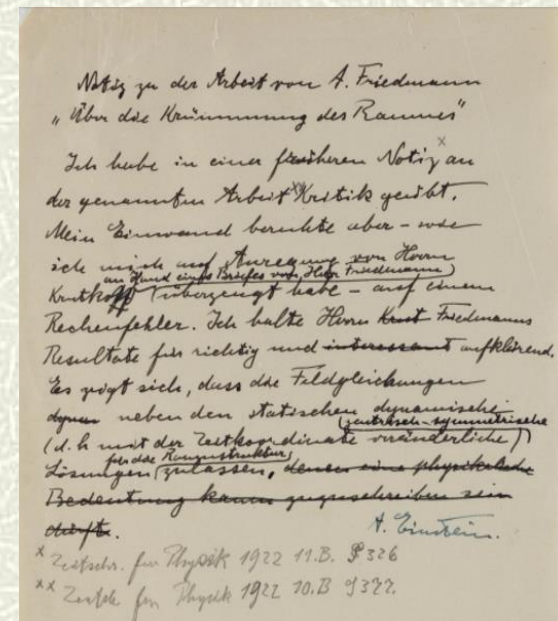 Notiz zu der Arbeit von A. Friedmann
„Über die Krümmung des Raumes"
Ich habe in einer früheren Notiz x an
der genannten Arbeit xx Kritik geübt.
Mein Einwand beruhte aber – wie
ich mich auf Anregung von Herrn
an Hand eines Briefes von Herr Friedmann)
Krutkoff (überzeugt habe – auf einem
Rechenfehler. Ich halte Herrn Krut Friedmanns
Resultate für richtig und interessant aufklärend.
Es zeigt sich, dass die Feldgleichungen
dynam neben den statischen dynamische
(zentrisch-symmetrische
(d. h mit der Zeitkoordinate veränderliche))
für die Raumstruktur
Lösungen (zulassen, denen eine physikalische
Bedeutung kaum zuzuschreiben sein
dürfte.
A. Einstein.
x Zeitschr. für Physik 1922 11.B. S 326
xx Zeitsch für Physik 1922 10.B S 377.